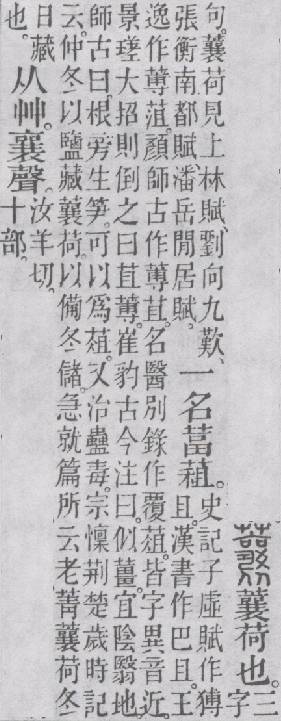 蘘荷也。三
字
句。蘘荷見上林賦、劉向九歎、
張衡南都賦潘岳閒居賦。
一名葍蒩。
史記子虛賦作猼
且。漢書作巴且。王
逸作蓴菹。顏師古作蓴苴。名醫別錄作覆葅。皆字異音近。
景瑳大招則倒之曰苴蓴。崔豹古今注曰。似薑。宜陰翳地。
師古曰。根旁生笋。可以爲葅。又治蠱毒。宗懍荆楚歲時記
云。仲冬以鹽藏蘘荷。以備冬儲。急就篇所云老菁蘘荷冬
日藏
也。
从艸。襄聲。
汝羊切。
十部。